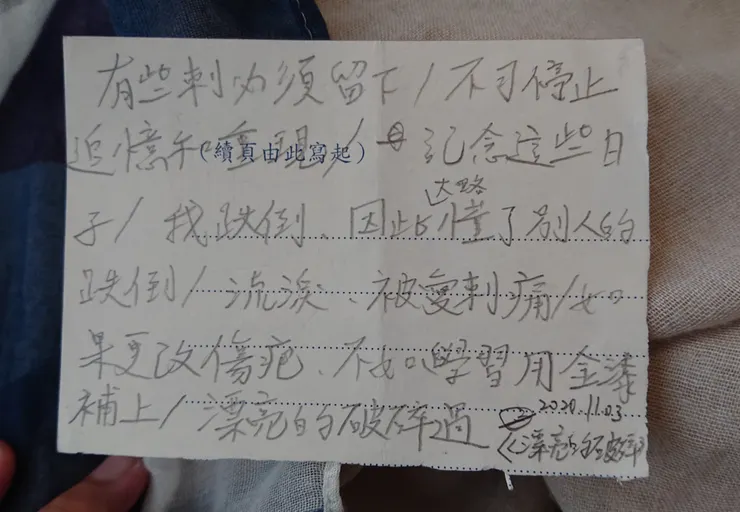 有些刺必須留下/不可停止
追憶和重現/ 記念這些日
(續頁由此寫起)
子/我跌倒、因此懂了別人的
跌倒/流淚、被愛刺痛/如
果更改傷疤、不如學習用金漆
補上/漂亮的破碎過
2020.11.03